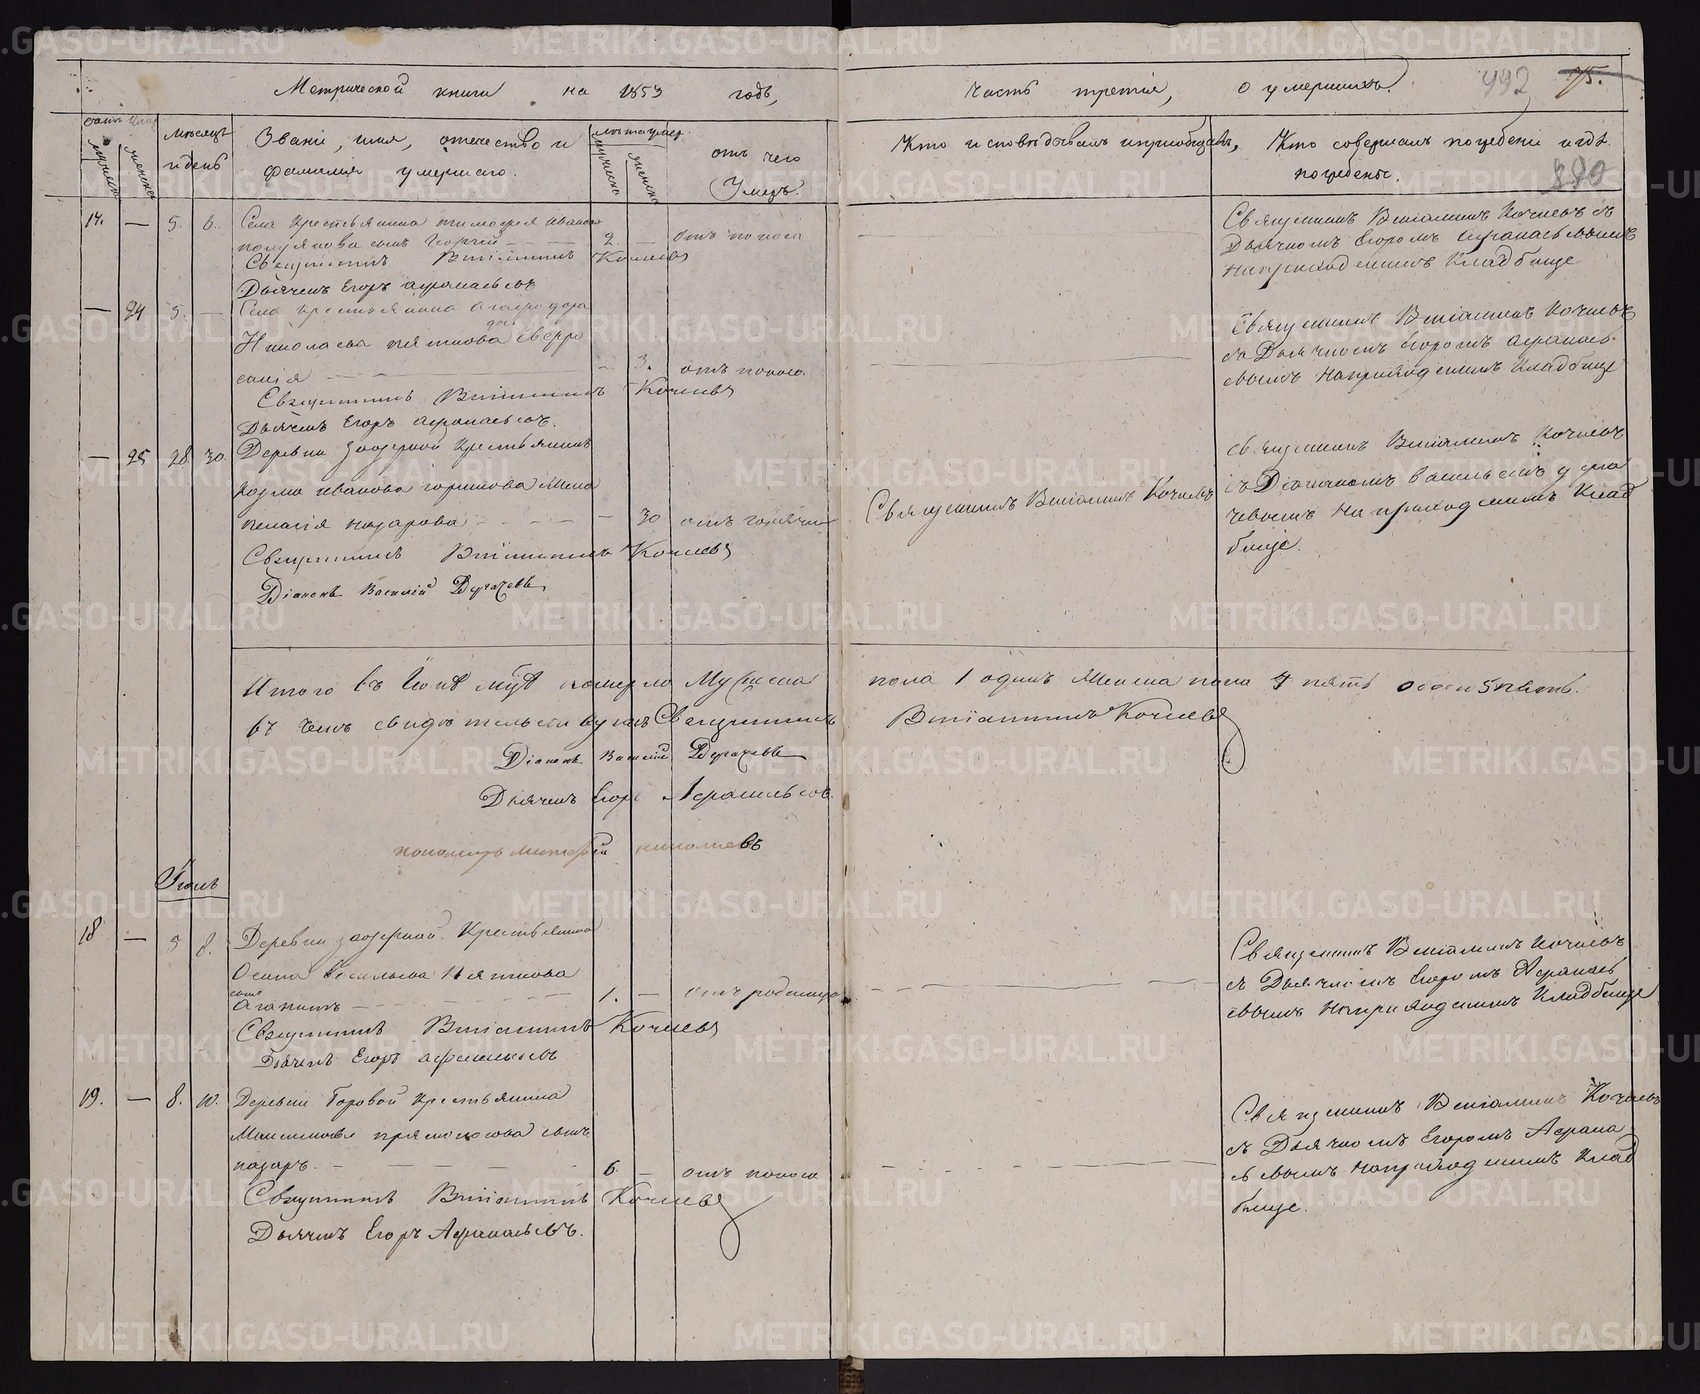 Метрической книги на 1853 годъ,
Часть третія, о умершихъ.
992 75.
880
счетъ
мужеска
женска
мѣсяцъ
и день
Званіе, имя, отечество и
фамилія умершаго.
лѣта умер.
мужеска
женска
отъ чего
Умеръ.
Кто исповѣдывалъ и пріобщалъ,
Кто совершалъ погребеніе и гдѣ
погребены.
17. — 5. 6. Села крестьянина Тимофея Иванова
сынъ Георгій — — 2. — отъ поноса
Священникъ Веніаминъ Кочневъ
Дьячекъ Егоръ Афонасьевъ
Священникъ Веніаминъ Кочневъ съ
Дьячкомъ Егоромъ Афанасьевымъ
на приходскомъ кладбище
— 24 5. — Села крестьянина
Николаева Пяткова дочь Евфро
синія — — 3. отъ поноса
Священникъ Веніаминъ Кочневъ
Дьячекъ Егоръ Афонасьевъ.
Священникъ Веніаминъ Кочневъ
съ Дьячкомъ Егоромъ Афанась
евымъ на приходскомъ кладбище
— 25 28 30. Деревни Заозерной крестьянина
Козмы Иванова жена
Пелагія Назарова — — 30 отъ горячки
Священникъ Веніаминъ Кочневъ
Діаконъ Василій Дергачевъ
Священникъ Веніаминъ Кочневъ
Священникъ Веніаминъ Кочневъ
съ Діакономъ Васильемъ Дерга
чевымъ на приходскомъ клад
бище.
Итого въ Іюнѣ мцѣ померло Мужеска пола 1 одинъ Женска пола пять
въ чемъ свидѣтельствуютъ Священникъ Веніаминъ Кочневъ
Діаконъ Василій Дергачевъ
Дьячекъ Егоръ Афанасьевъ.
пономарь Николаевъ
Іюль
18 — 5 8. Деревни Заозерной Крестьянина
Осипа Васильева Пяткова
сынъ
Агапитъ — — 1. — отъ родимца
Священникъ Веніаминъ Кочневъ
Дьячекъ Егоръ Афанасьевъ
Священникъ Веніаминъ Кочневъ
съ Дьячкомъ Егоромъ Афанась
евымъ на приходскомъ кладбище
19. — 8. 10. Деревни Боровой крестьянина
Прямоносова сынъ
Назаръ. — — 6. — отъ поноса
Священникъ Веніаминъ Кочневъ
Дьячекъ Егоръ Афанасьевъ.
Священникъ Веніаминъ Кочневъ
съ Дьячкомъ Егоромъ Афана
сьевымъ на приходскомъ клад
бище.
METRIKI.GASO-URAL.RU